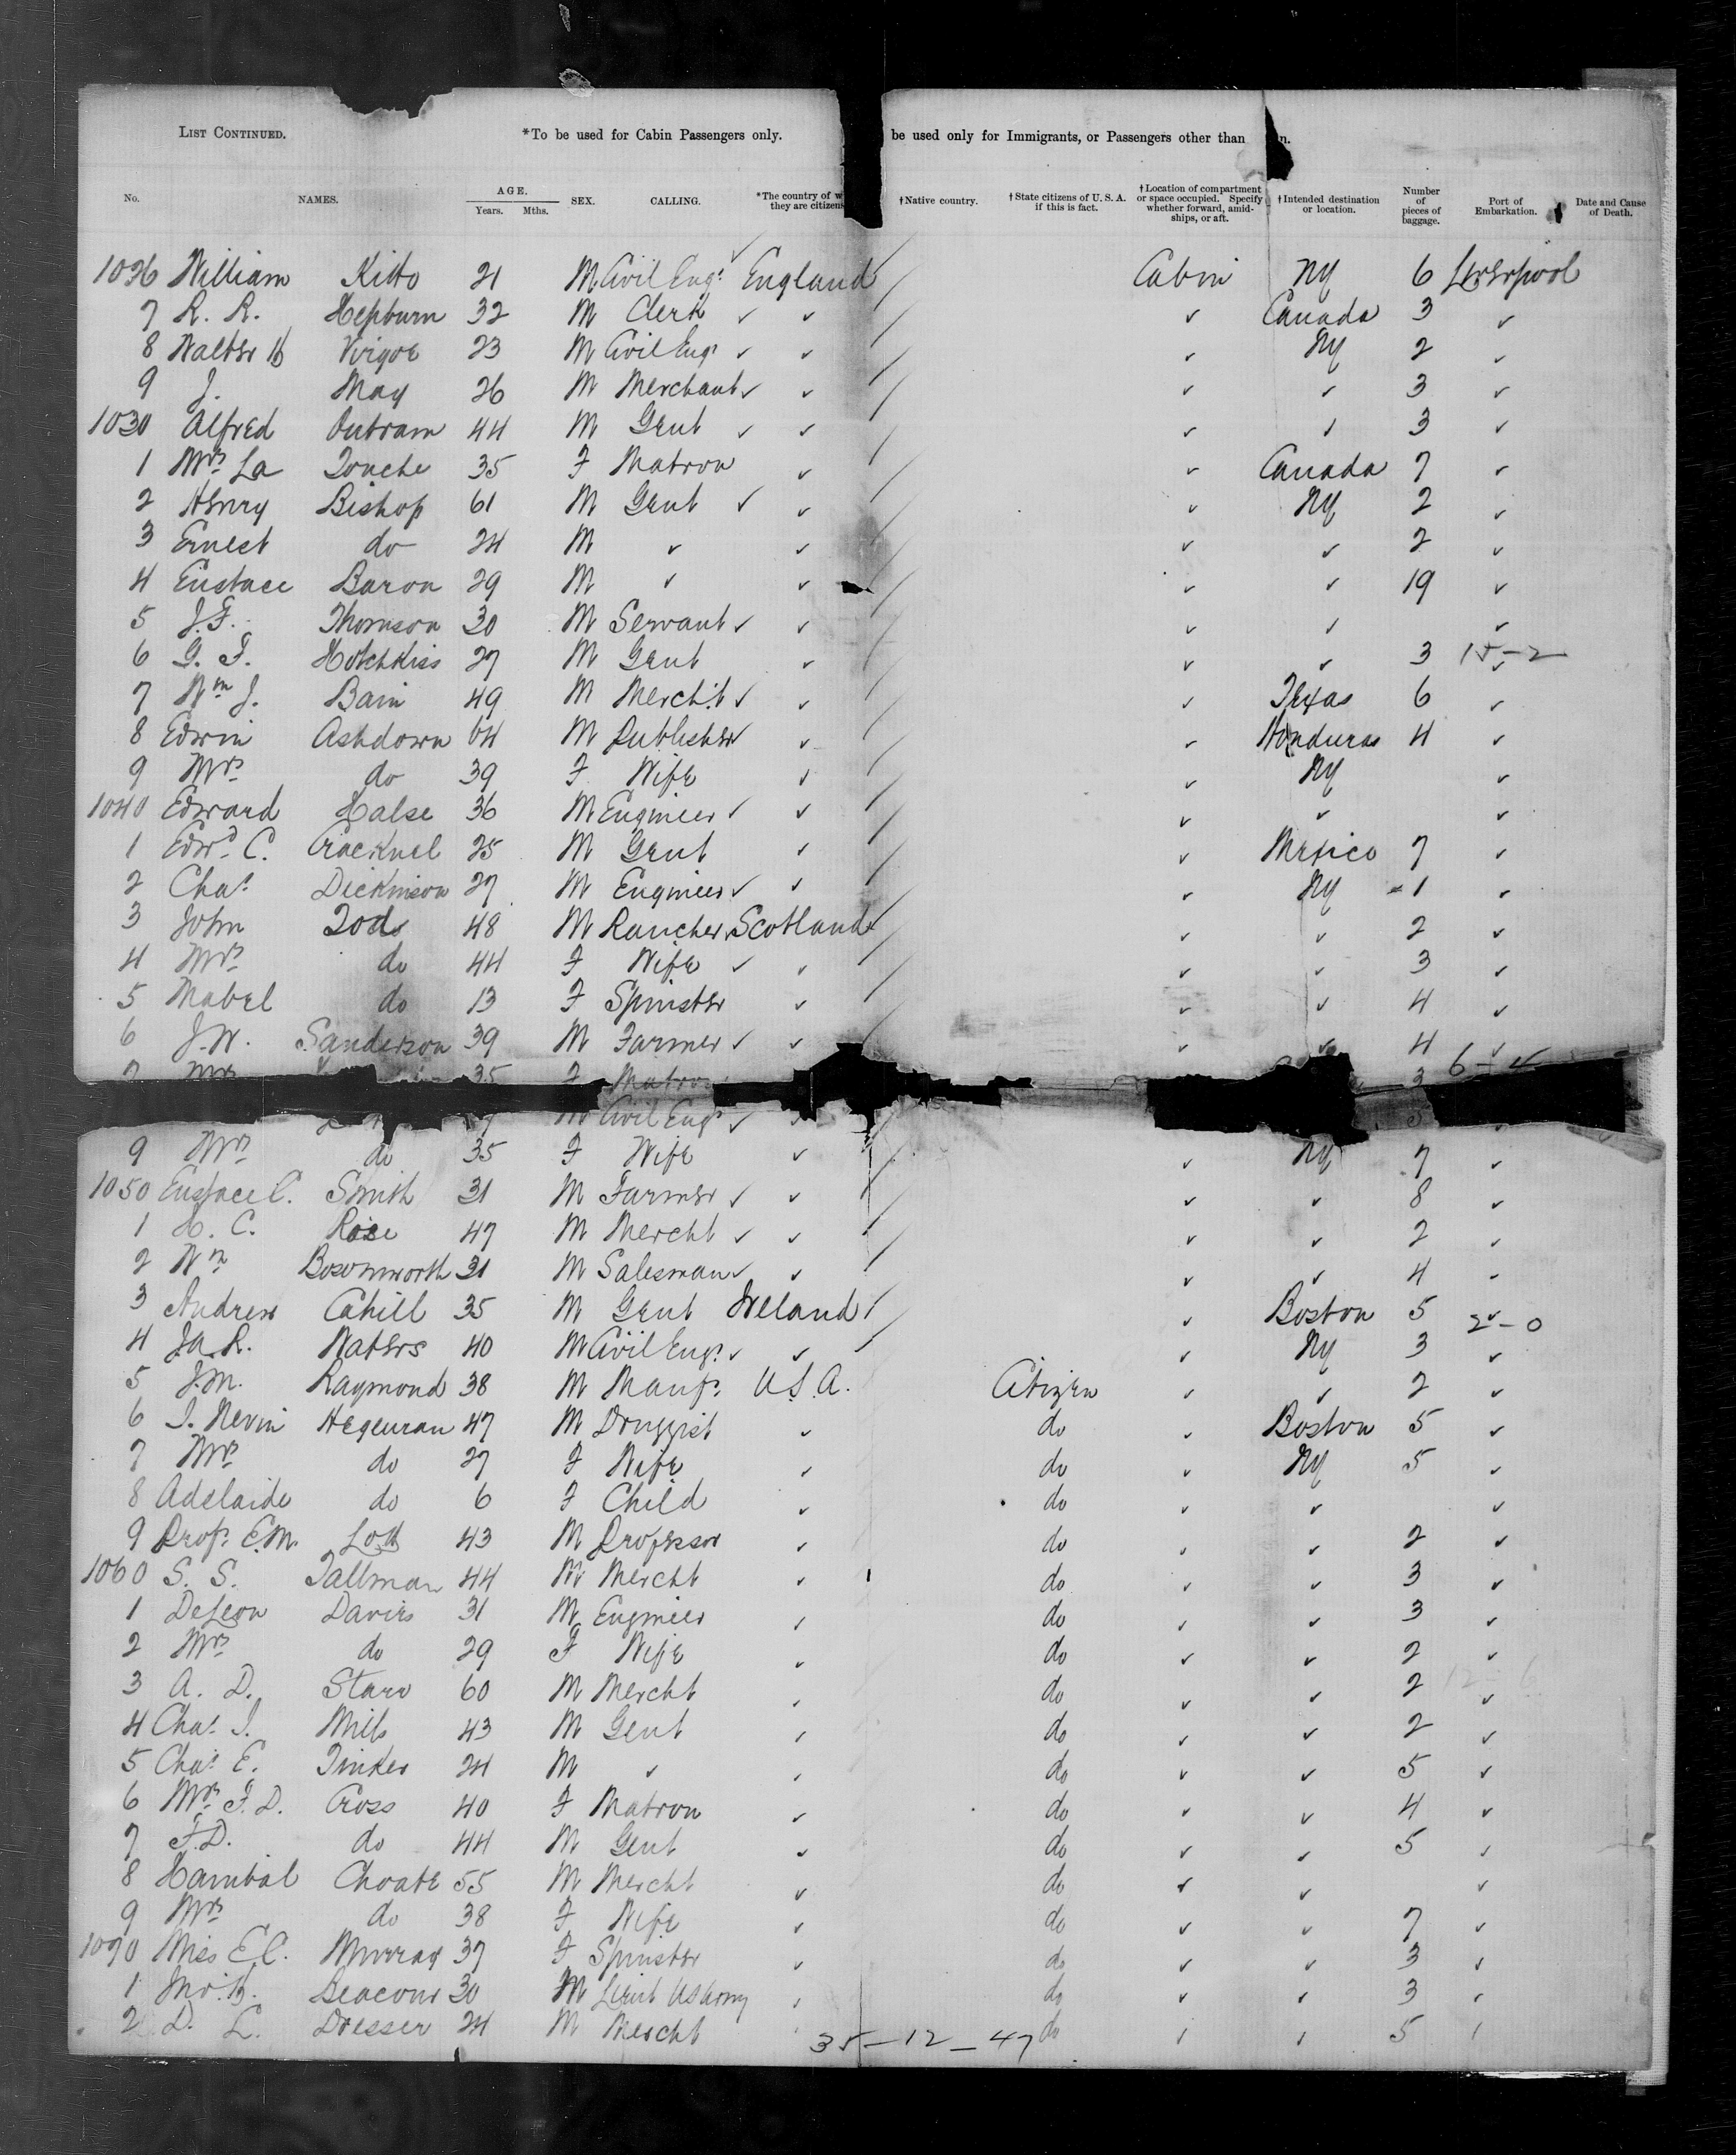 LIST CONTINUED. *To be used for Cabin Passengers only. be used only for Immigrants, or Passengers other than n.
No. NAMES. AGE. Years. Mths. SEX. CALLING. *The country of w they are citizens †Native country. †State citizens of U. S. A. if this is fact. †Location of compartment or space occupied. Specify whether forward, amidships, or aft. †Intended destination or location. Number of pieces of baggage. Port of Embarkation. Date and Cause of Death.
1026 William Kitto 21 M Civil Engr England Cabin NY 6 Liverpool
7 R. R. Hepburn 32 M Clerk ✓ ✓ ✓ Canada 3 ✓
8 Walter H Virgoe 23 M Civil Engr ✓ ✓ ✓ NY 2 ✓
9 J. May 26 M Merchant ✓ ✓ ✓ ✓ 3 ✓
1030 Alfred Outram 44 M Gent ✓ ✓ ✓ ✓ 3 ✓
1 Mrs La Touche 35 F Matron ✓ ✓ Canada 7 ✓
2 Henry Bishop 61 M Gent ✓ ✓ ✓ NY 2 ✓
3 Ernest do 24 M ✓ ✓ ✓ ✓ 2 ✓
4 Eustace Baron 29 M ✓ ✓ ✓ ✓ 19 ✓
5 J. F. Thomson 30 M Servant ✓ ✓ ✓ ✓ ✓
6 G. F. Hotchkiss 27 M Gent ✓ ✓ ✓ 3 15-2 ✓
7 Wm J. Bain 49 M Mercht ✓ ✓ ✓ Texas 6 ✓
8 Edwin Ashdown 64 M Publisher ✓ ✓ ✓ Honduras 4 ✓
9 Mrs do 39 F Wife ✓ ✓ NY ✓
1040 Edward Halse 36 M Engineer ✓ ✓ ✓ ✓ ✓
1 Edwd C. Cracknel 25 M Gent ✓ ✓ Mexico 7 ✓
2 Chas Dickinson 27 M Engineer ✓ ✓ ✓ NY 1 ✓
3 John Tod 48 M Rancher Scotland ✓ ✓ 2 ✓
4 Mrs do 44 F Wife ✓ ✓ ✓ ✓ 3 ✓
5 Mabel do 13 F Spinster ✓ ✓ ✓ 4 ✓
6 J. W. Sanderson 39 M Farmer ✓ ✓ ✓ ✓ 4 ✓
7 Mrs 35 F Matron 3 6-4
M Civil Engr ✓ ✓
9 Mrs do 35 F Wife ✓ ✓ NY 7 ✓
1050 Eustace C. Smith 31 M Farmer ✓ ✓ ✓ ✓ 8 ✓
1 H. C. Rose 47 M Mercht ✓ ✓ ✓ ✓ 2 ✓
2 Wm Bosomworth 31 M Salesman ✓ ✓ ✓ ✓ 4 ✓
3 Andrew Cahill 35 M Gent Ireland ✓ Boston 5 2-0 ✓
4 Ja. R. Waters 40 M Civil Engr ✓ ✓ ✓ NY 3 ✓
5 J. M. Raymond 38 M Manfr U.S.A. Citizen ✓ ✓ 2 ✓
6 J. Nevin Hegeman 47 M Druggist ✓ do ✓ Boston 5 ✓
7 Mrs do 27 F Wife ✓ do ✓ NY 5 ✓
8 Adelaide do 6 F Child ✓ do ✓ ✓ ✓
9 Profr E. M. 43 M Professor ✓ do ✓ ✓ 2 ✓
1060 S. S. Tallman 44 M Mercht ✓ do ✓ ✓ 3 ✓
1 DeLeon Davies 31 M Engineer ✓ do ✓ ✓ 3 ✓
2 Mrs do 29 F Wife ✓ do ✓ ✓ 2 ✓
3 A. D. Starr 60 M Mercht ✓ do ✓ ✓ 2 12 6 ✓
4 Chas J. Mills 43 M Gent ✓ do ✓ ✓ 2 ✓
5 Chas E. Tinker 24 M ✓ ✓ do ✓ ✓ 5 ✓
6 Mrs F. D. Cross 40 F Matron ✓ do ✓ ✓ 4 ✓
7 F. D. do 44 M Gent ✓ do ✓ ✓ 5 ✓
8 Hanibal Choate 55 M Mercht ✓ do ✓ ✓ ✓
9 Mrs do 38 F Wife ✓ do ✓ ✓ 7 ✓
1070 Miss E C. Murray 37 F Spinster ✓ do ✓ ✓ 3 ✓
1 Beacom 30 M Lieut US Army ✓ do ✓ ✓ 3 ✓
2 D. L. Dresser 24 M Mercht ✓ do ✓ ✓ 5 ✓
35-12-47